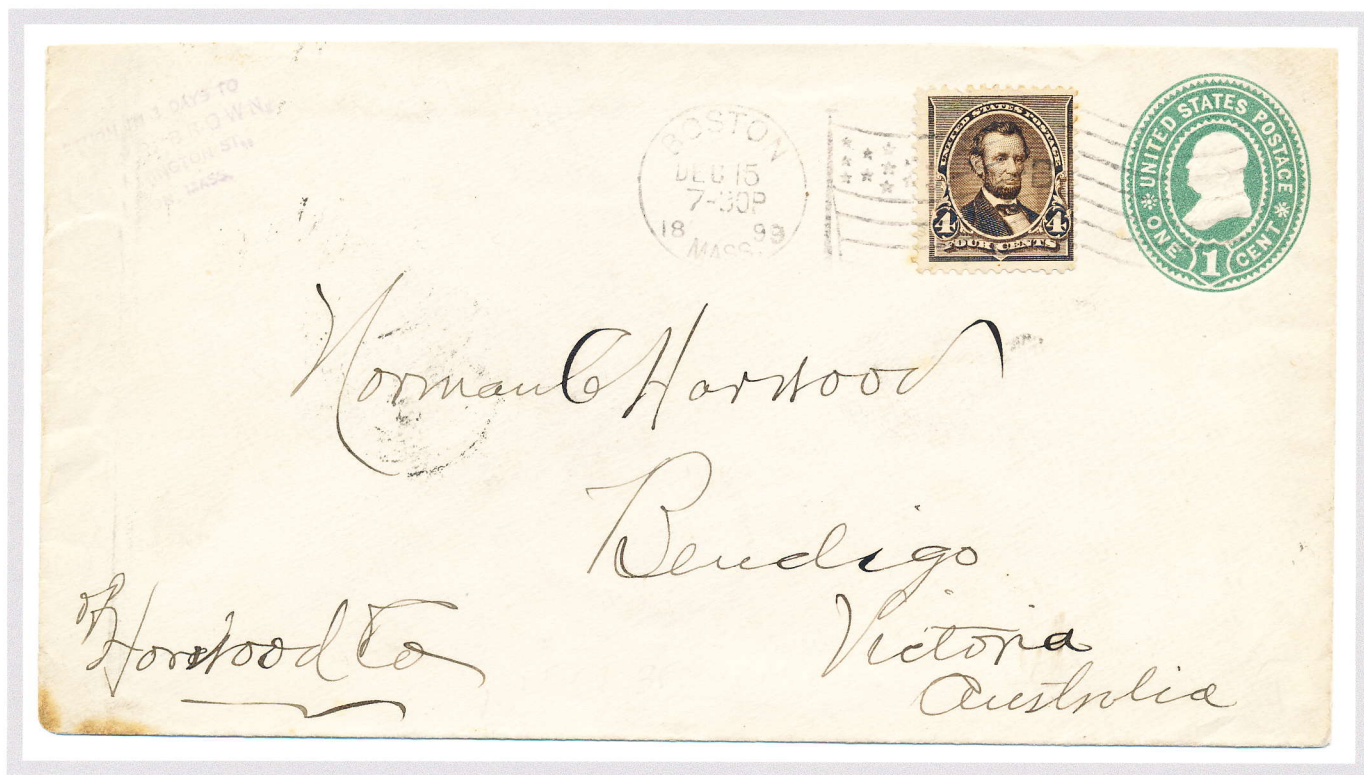 DAYS TO
BOSTON
DEC 15
7-30P
18 99
MASS.
UNITED STATES POSTAGE
4 4
FOUR CENTS
UNITED STATES POSTAGE
ONE 1 CENT
Norman C Horwood
Bendigo
Victoria
Australia
of Horwood & Co